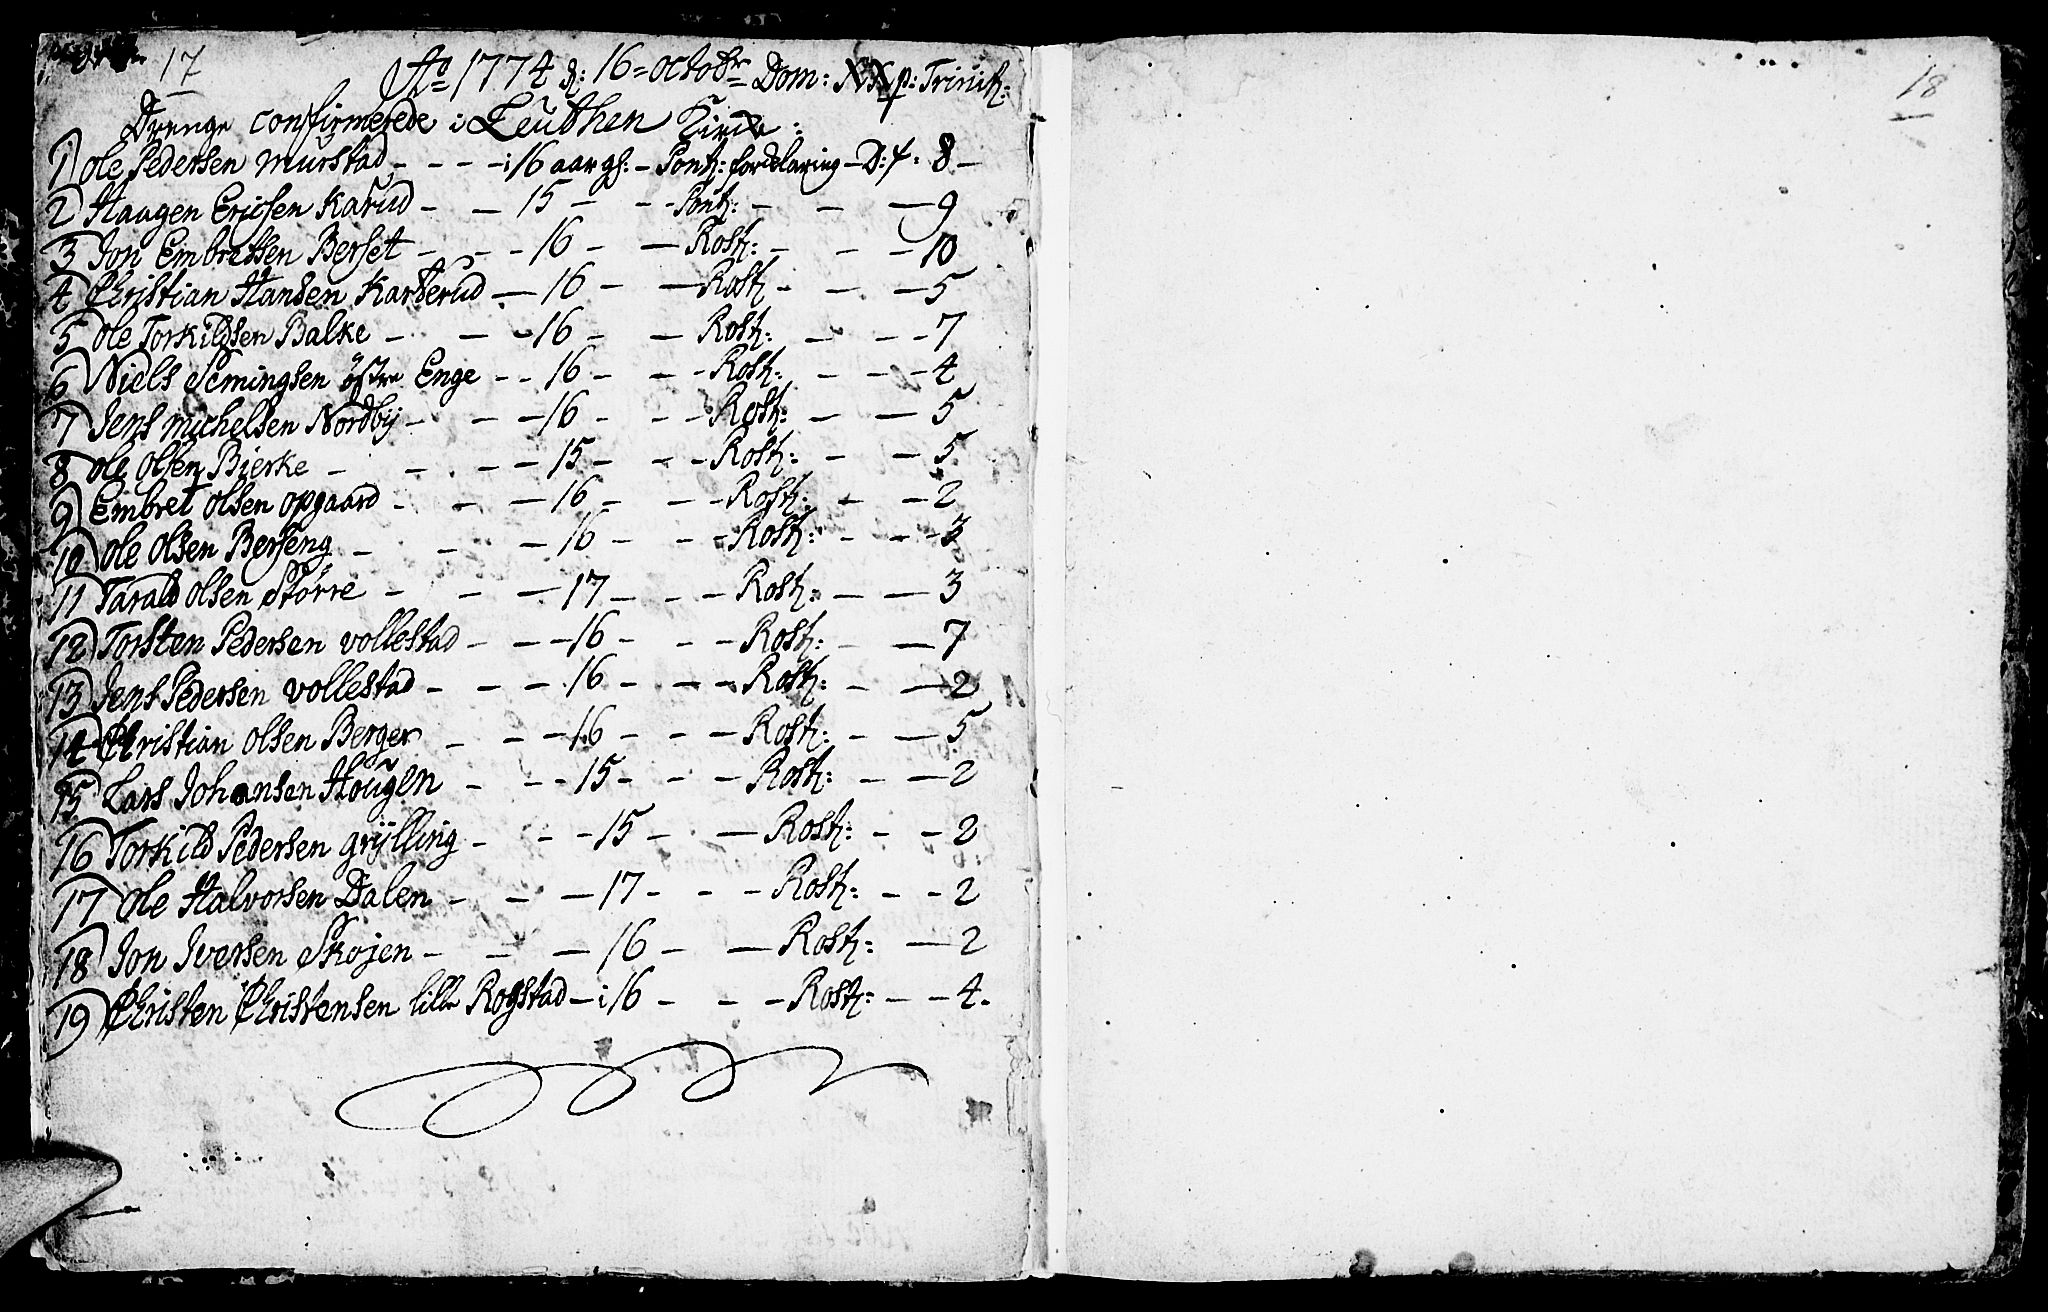 17
Ao 1774 d: 16 = octobr Dom: XX p: Trinit:
Drenge confirmerede i Leuthen Kirche:
1) Ole Pedersen Murstad - - - - i 16 aar gl: - Pont: forclaring - D: 4 = 8 -
2) Haagen Ericsen Karud - - 15 - - - Pont: - - - 9
3) Jon Embretsen Berset - - - 16 - - Rosk: - - - 10
4) Christian Hansen Karterud - 16 - - Rosk - - - 5
5) Ole Torkildsen Balke - - - 16 - - Rosk: - - - 7
6) Niels Semingsen östre Enge - - 16 - - - Rosk: - - - 4
7) Jens Michelsen Nordbÿ - - - 16 - - - Rosk: - - 5
8) Ole Olsen Bierke - - - - 15 - - - Rosk: - - 5
9) Embret Olsen opgaard - - - 16 - - - Rosk: - - 2
10) Ole Olsen Berseng - - - 16 - - - Rosk: - - - 3
11) Tarald Olsen Skörre - - - 17 - - - Rosk: - - 3
12) Torsten Pedersen vollestad - - - 16 - - - Rosk: - - 7
13) Jens Pedersen vollestad - - - 16 - - - Rosk: - - 2
14) Christian Olsen Berger - - - 16 - - - Rosk: - - 5
15) Lars Johansen Hougen - - - 15 - - - Rosk: - - 2
16) Torkild Pedersen grÿlling - - - 15 - - Rosk: - - 2
17) Ole Halvorsen Dalen - - - 17 - - - Rosk: - - 2
18) Jon Iversen Skojen - - - 16 - - Rosk: - 2
19) Christen Christensen lille Rogstad - i 16 - - - Rosk: - - 4.
18